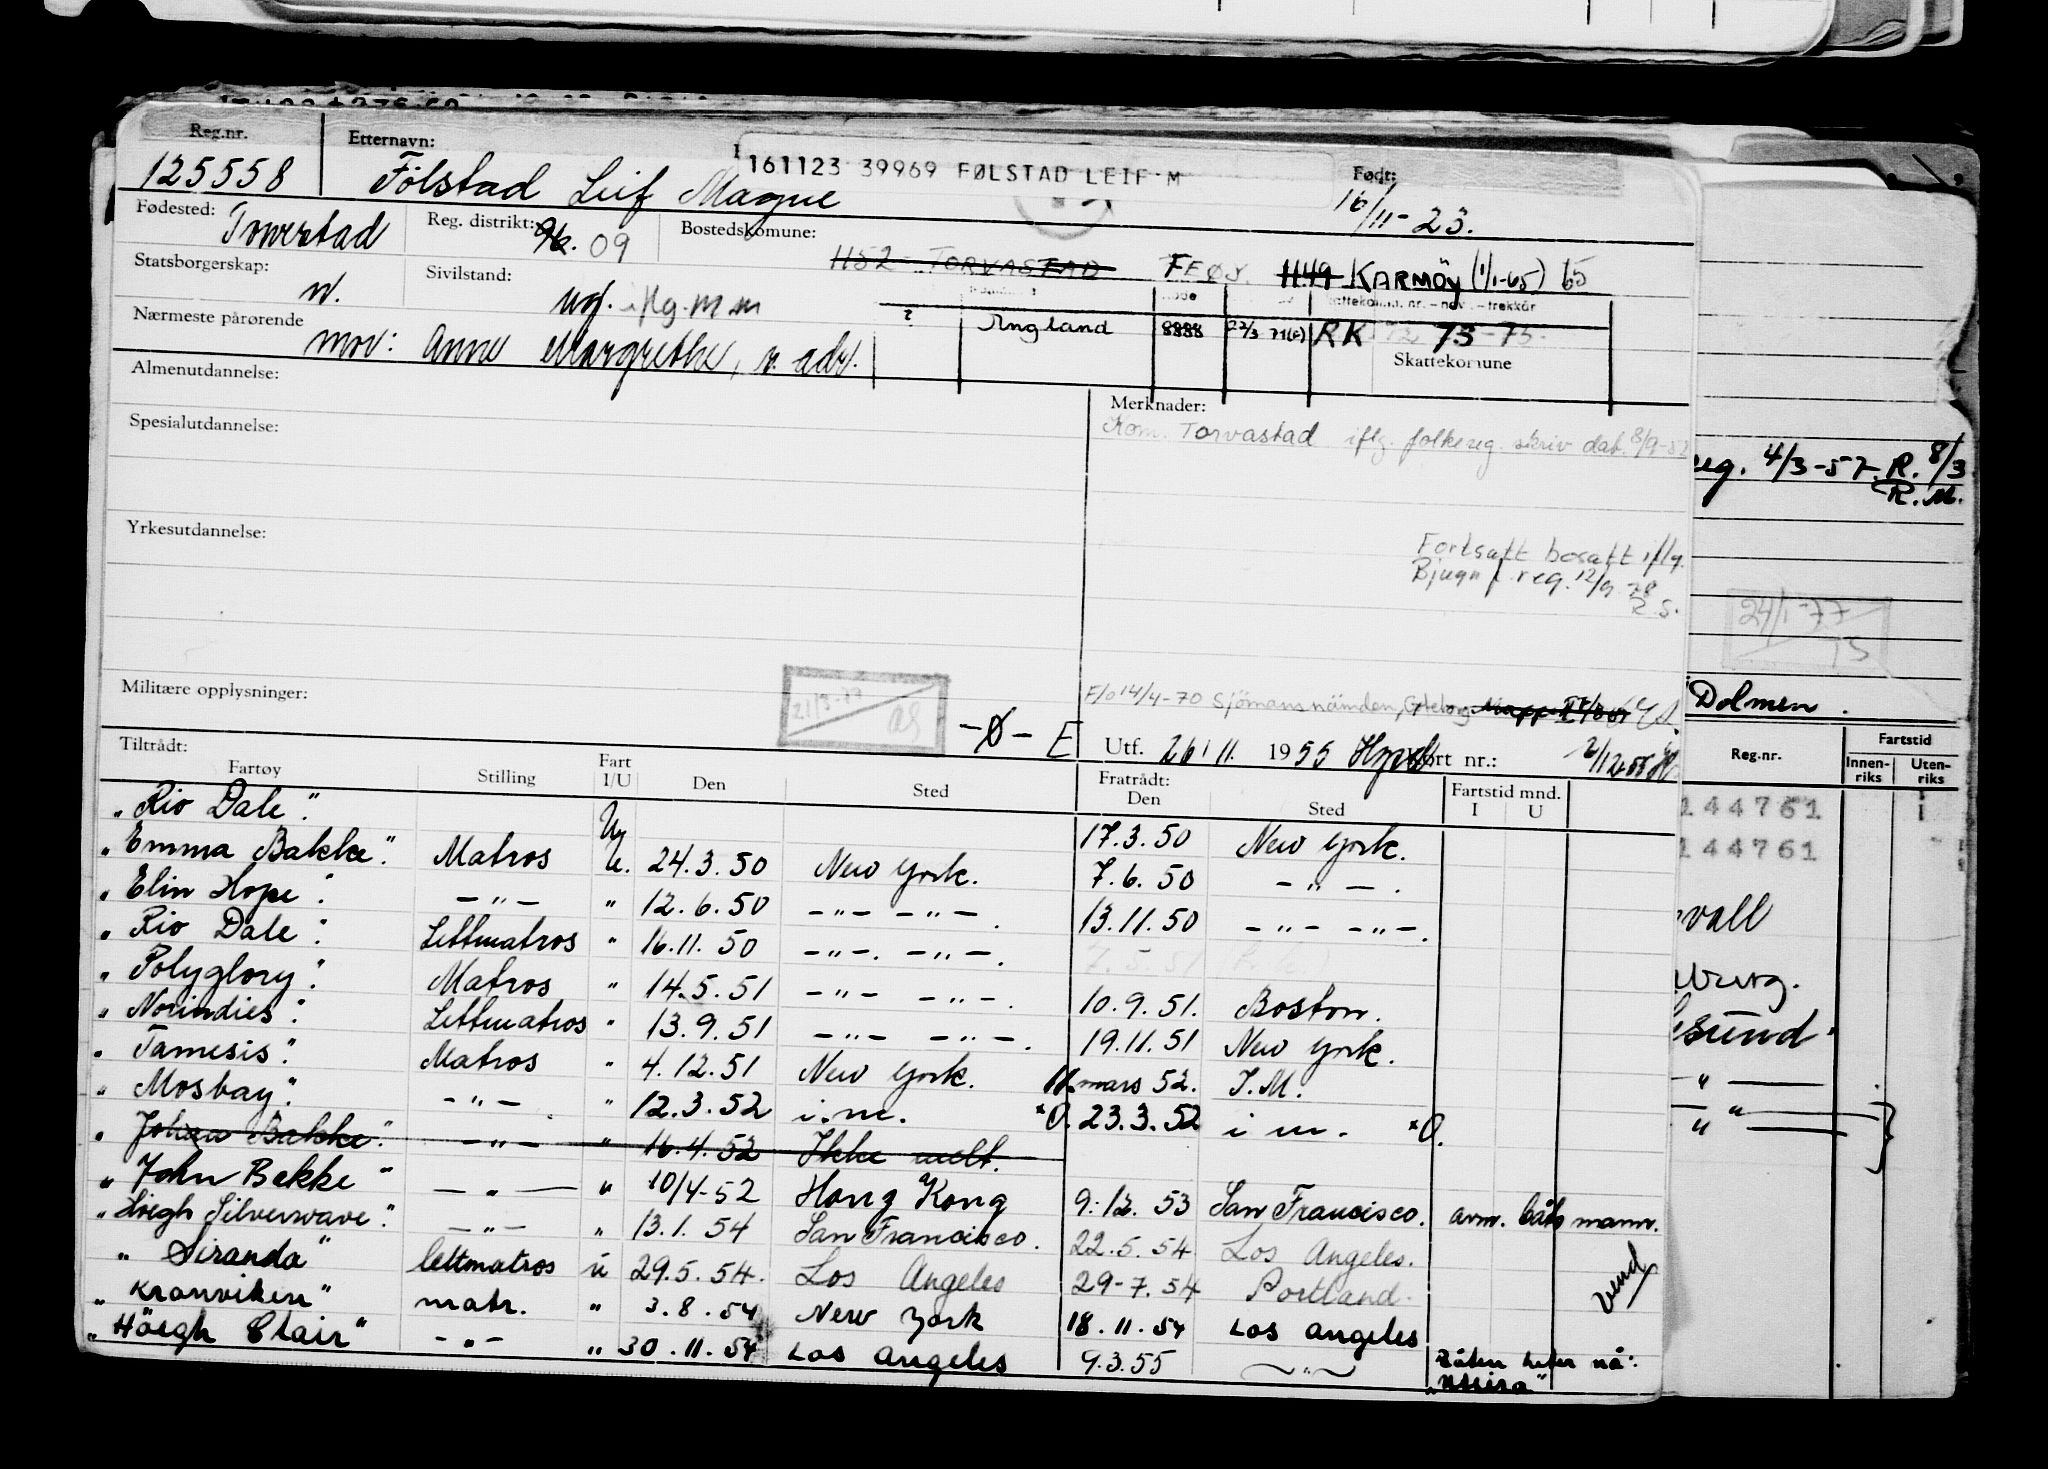 Reg.nr. Etternavn: 161123 39969 FØLSTAD LEIF M Født:
125558 Følstad Leif Magne 16/11-23.
Fødested: Reg. distrikt: 09 Bostedskomune:
1152 TORVASTAD FEØY. 1149 KARMÖY (1/1-65) 65
Statsborgerskap: n. Sivilstand: ug. iflg. m m
Nærmeste pårørende ? England 8888 RK 75-75.
mor: Anne Margrethe, s. adr. Skattekomune
Almenutdannelse:
Merknader:
Kom. Torvastad iflg. folkereg. skriv dat. 8/9-52
Spesialutdannelse:
reg. 4/3-57. R. 8/3
R. M.
Yrkesutdannelse:
Fortsatt bosatt iflg.
Bjugn f. reg. 12/9 78
R. S.
24/1-77
Militære opplysninger:
F/o 14/4-70 Sjömansnämden, Göteborg
Dolmen.
-Ø- E Utf. 26/11. 1955 kort nr.: 2/12-55
Tiltrådt: Fratrådt: Fartstid
Fartøy Stilling Fart I/U Den Sted Den Sted Fartstid mnd. I U Reg.nr. Innen-riks Uten-riks
"Rio Dale" 17.3.50 New York. 144761
"Emma Bakke". Matros U. 24.3.50 New York. 7.6.50 — " —. 144761
"Elin Hope". — " — " 12.6.50 — " — — " — 13.11.50 — " — — " —.
"Rio Dale". Lettmatros " 16.11.50 — " —. — " —. 7.5.51
"Polyglory". Matros " 14.5.51 — " — — " —. 10.9.51. Boston.
"Norindies". Lettmatros " 13.9.51 — " — — " —. 19.11.51 New York.
"Tamesis". Matros " 4.12.51 New York. 11. mars 52. I.M.
"Mosbay". — " —. " 12.3.52 i.m. *O. 23.3.52 i m. *O.
"Johan Bakke". — " — " 16.4.52 Ikke melt.
"John Bakke" — " — " 10/4-52 Hong Kong 9.12.53 San Francisco. avm. båtsmann.
"Höegh Silverwave". — " — " 13.1.54 San Francisco. 22.5.54 Los Angeles.
"Siranda" lettmatros u 29.5.54. Los Angeles 29-7.54 Portland. vend
"Kranviken" matr. " 3.8.54 New York 18.11.54 Los Angeles
"Höegh Clair" — " — " 30.11.54 Los Angeles 9.3.55 — " —
Båten heter nå: